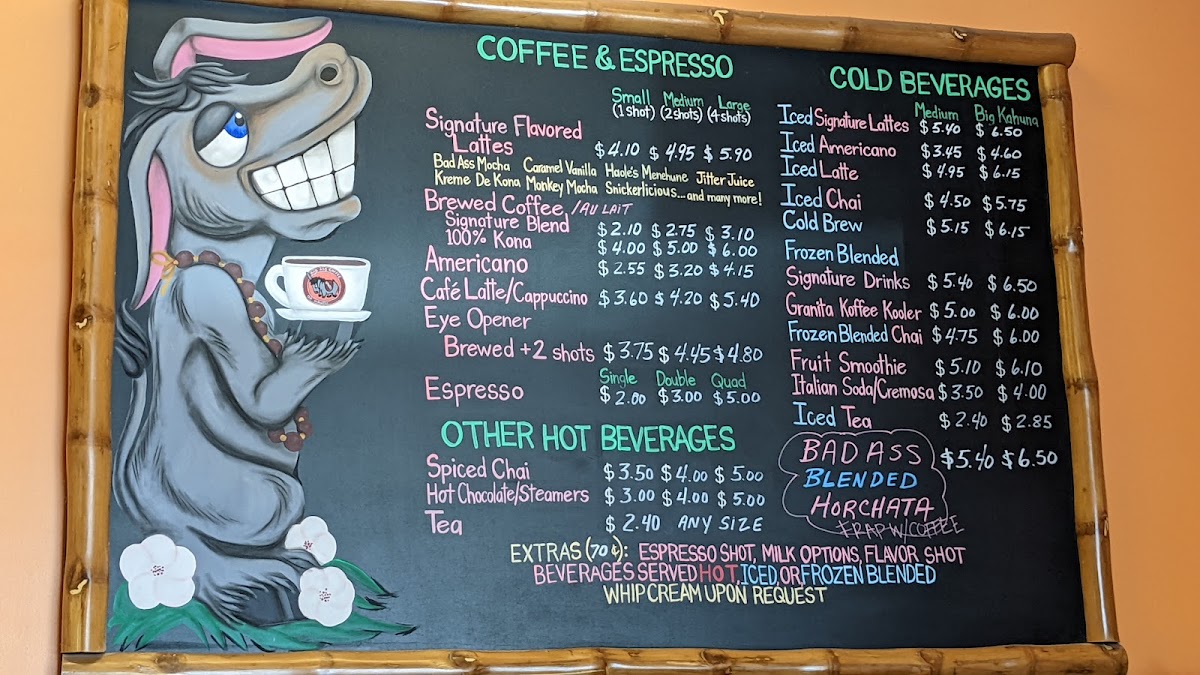 COFFEE & ESPRESSO
Small Medium Large
(1 shot) (2 shots) (4 shots)
Signature Flavored
Lattes $4.10 $4.95 $5.90
Bad Ass Mocha Caramel Vanilla Haole's Menehune Jitter Juice
Kreme De Kona Monkey Mocha Snickerlicious...and many more!
Brewed Coffee /AU LAIT
Signature Blend $2.10 $2.75 $3.10
100% Kona $4.00 $5.00 $6.00
Americano $2.55 $3.20 $4.15
Café Latte/Cappuccino $3.60 $4.20 $5.40
Eye Opener
Brewed +2 shots $3.75 $4.45 $4.80
Single Double Quad
Espresso $2.00 $3.00 $5.00
OTHER HOT BEVERAGES
Spiced Chai $3.50 $4.00 $5.00
Hot Chocolate/Steamers $3.00 $4.00 $5.00
Tea $2.40 ANY SIZE
COLD BEVERAGES
Medium Big Kahuna
Iced Signature Lattes $5.40 $6.50
Iced Americano $3.45 $4.60
Iced Latte $4.95 $6.15
Iced Chai $4.50 $5.75
Cold Brew $5.15 $6.15
Frozen Blended
Signature Drinks $5.40 $6.50
Granita Koffee Kooler $5.00 $6.00
Frozen Blended Chai $4.75 $6.00
Fruit Smoothie $5.10 $6.10
Italian Soda/Cremosa $3.50 $4.00
Iced Tea $2.40 $2.85
BAD ASS $5.40 $6.50
BLENDED
HORCHATA
FRAP W/COFFEE
EXTRAS (70¢): ESPRESSO SHOT, MILK OPTIONS, FLAVOR SHOT
BEVERAGES SERVED HOT, ICED, OR FROZEN BLENDED
WHIP CREAM UPON REQUEST